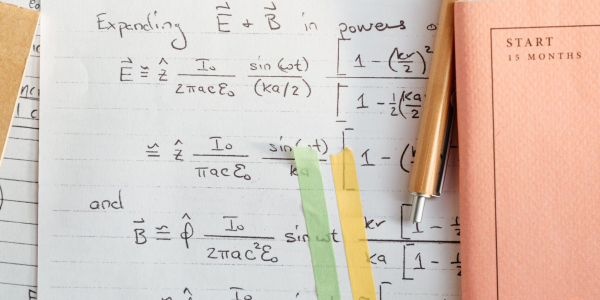 Expanding E⃗ + B⃗ in powers o
E⃗ ≅ ẑ I₀/2πacε₀ sin(ωt)/(ka/2) [1 - (kr/2)²
[1 - ½(ka
≅ ẑ I₀/πacε₀ sin(ωt)/ka [1 - (
and
B⃗ ≅ φ̂ I₀/2πac²ε₀ sin ωt kr/ka [1 - ½
[1 - ½
I₀
START
15 MONTHS